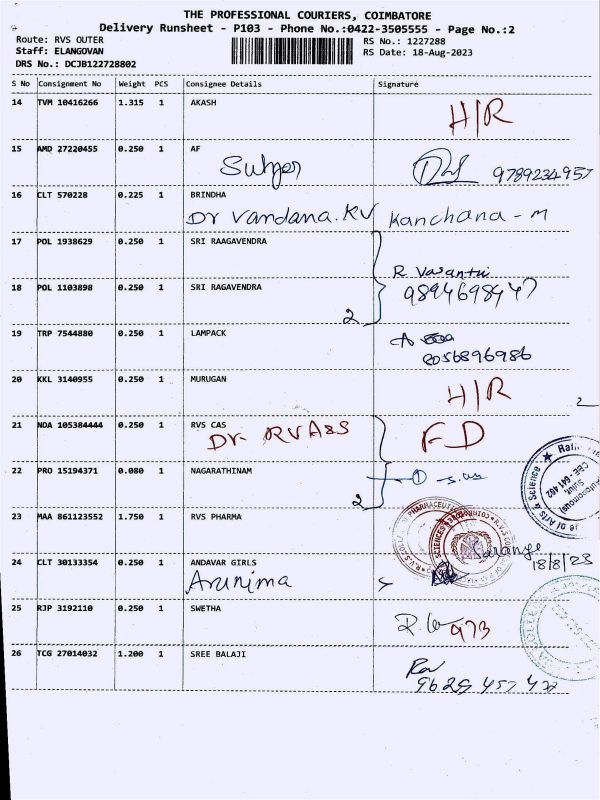 THE PROFESSIONAL COURIERS, COIMBATORE
Delivery Runsheet - P103 - Phone No.:0422-3505555 - Page No.:2
Route: RVS OUTER RS No.: 1227288
Staff: ELANGOVAN RS Date: 18-Aug-2023
DRS No.: DCJB122728802
S No Consignment No Weight PCS Consignee Details Signature
14 TVM 10416266 1.315 1 AKASH
H/R
15 AMD 27220455 0.250 1 AF
9789234957
16 CLT 570228 0.225 1 BRINDHA
Dr Vandana.KV Kanchana - M
17 POL 1938629 0.250 1 SRI RAAGAVENDRA
R Vasanthi
18 POL 1103898 0.250 1 SRI RAGAVENDRA
9894698447
2
19 TRP 7544880 0.250 1 LAMPACK
8056896986
20 KKL 3140955 0.250 1 MURUGAN
H/R
21 NDA 105384444 0.250 1 RVS CAS
Dr RVA&S FD
22 PRO 15194371 0.080 1 NAGARATHINAM
2
23 MAA 861123552 1.750 1 RVS PHARMA
24 CLT 30133354 0.250 1 ANDAVAR GIRLS
Arunima
18/8/23
25 RJP 3192110 0.250 1 SWETHA
973
26 TCG 27014032 1.200 1 SREE BALAJI